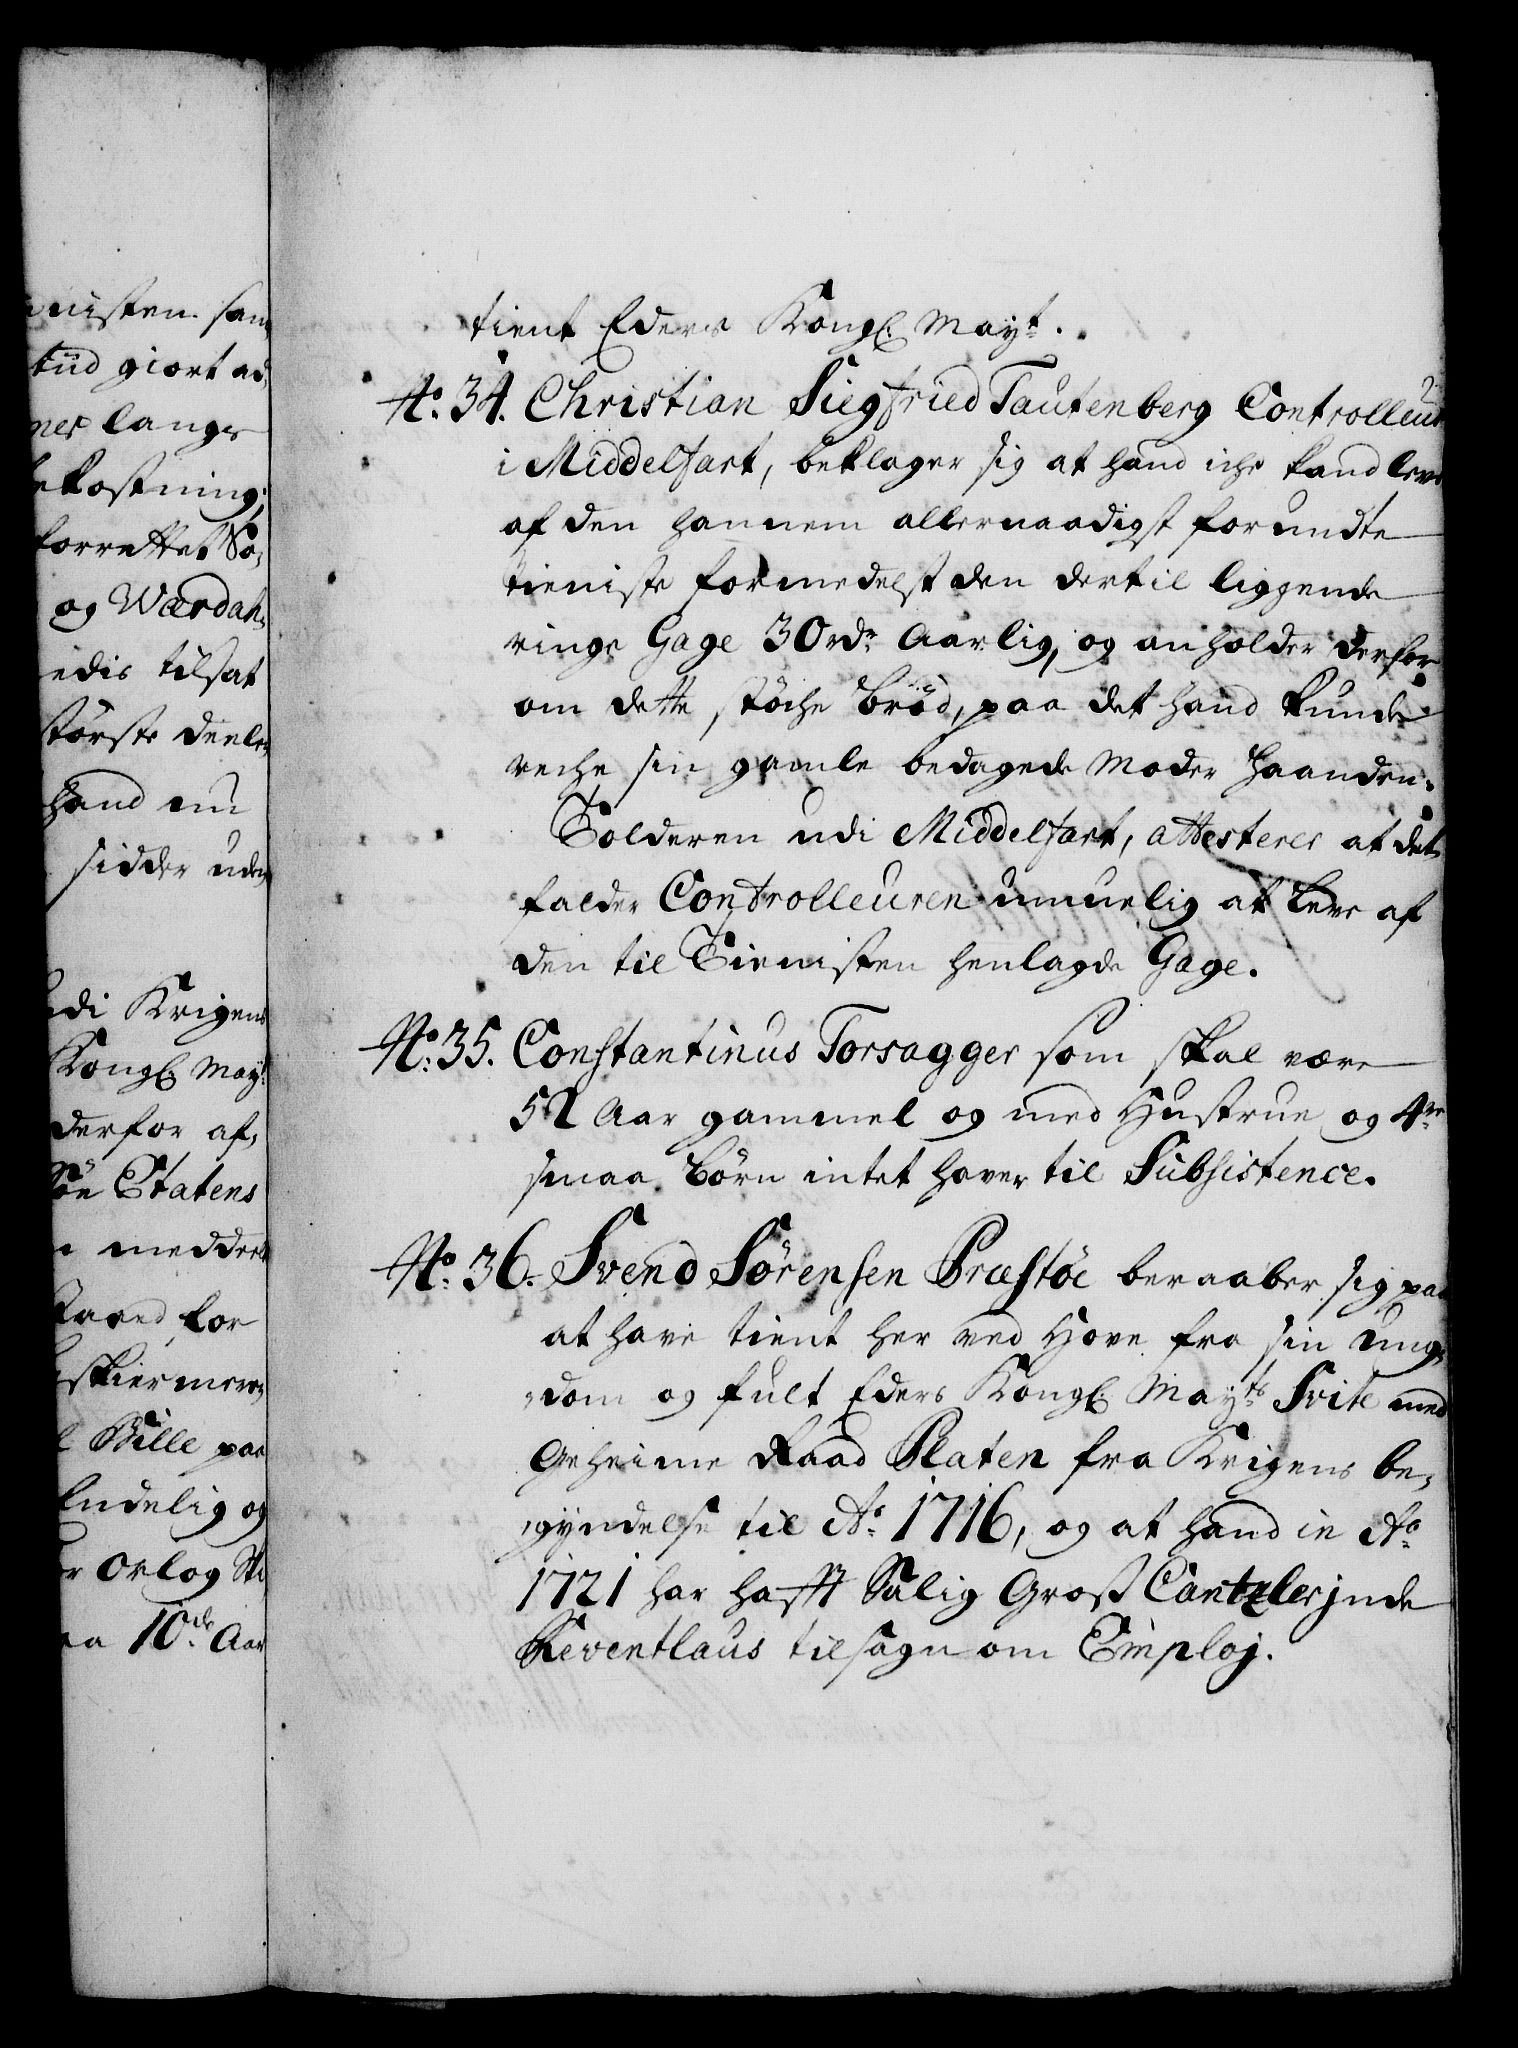 nisten. sam,
tiid giort ad,
ner lange
ekostning;
forrettet So,
og Wardah,
edis tilsat
störste deele,
hand nu
sidder uden
udi Krigens
Kongl. Mayt:
derfor af,
Söe Etatens
meddeel
for
skiermer,
Bille paa
Endelig og
Orlog
10de Aar
tient Eders Kongl. Mayt.
No. 34. Christian Siegfried Tautenberg Controlleur
i Middelfart, beklager sig at hand iche kand leve
af den hannem allernaadigst forundte
Tieniste formedelst den dertil liggende
ringe Gage 30 rdr Aarlig, og anholder derfor
om dette støche brød, paa det hand kunde
reche sin gamle bedagede Moder Haanden.
Tolderen udi Middelfart, attesterer at det
falder Controlleuren umuelig at leve af
den til Tienisten henlagde Gage.
No. 35. Constantinus Torsagger som skal være
52 Aar gammel og med Hustrue og 4re
smaa Börn intet haver til Subsistence.
No. 36. Svend Sörensen Præstöe beraaber sig paa
at have tient her ved Hove fra sin ung,
,dom og fult Eders Kongl. Mayts Svite med
Geheime Raad Platen fra Krigens be,
,gyndelse til Ao. 1716, og at hand in Ao
1721 har hafft Salig Groß Cantzlerjnde
Reventlaus tilsagn om Emploj.